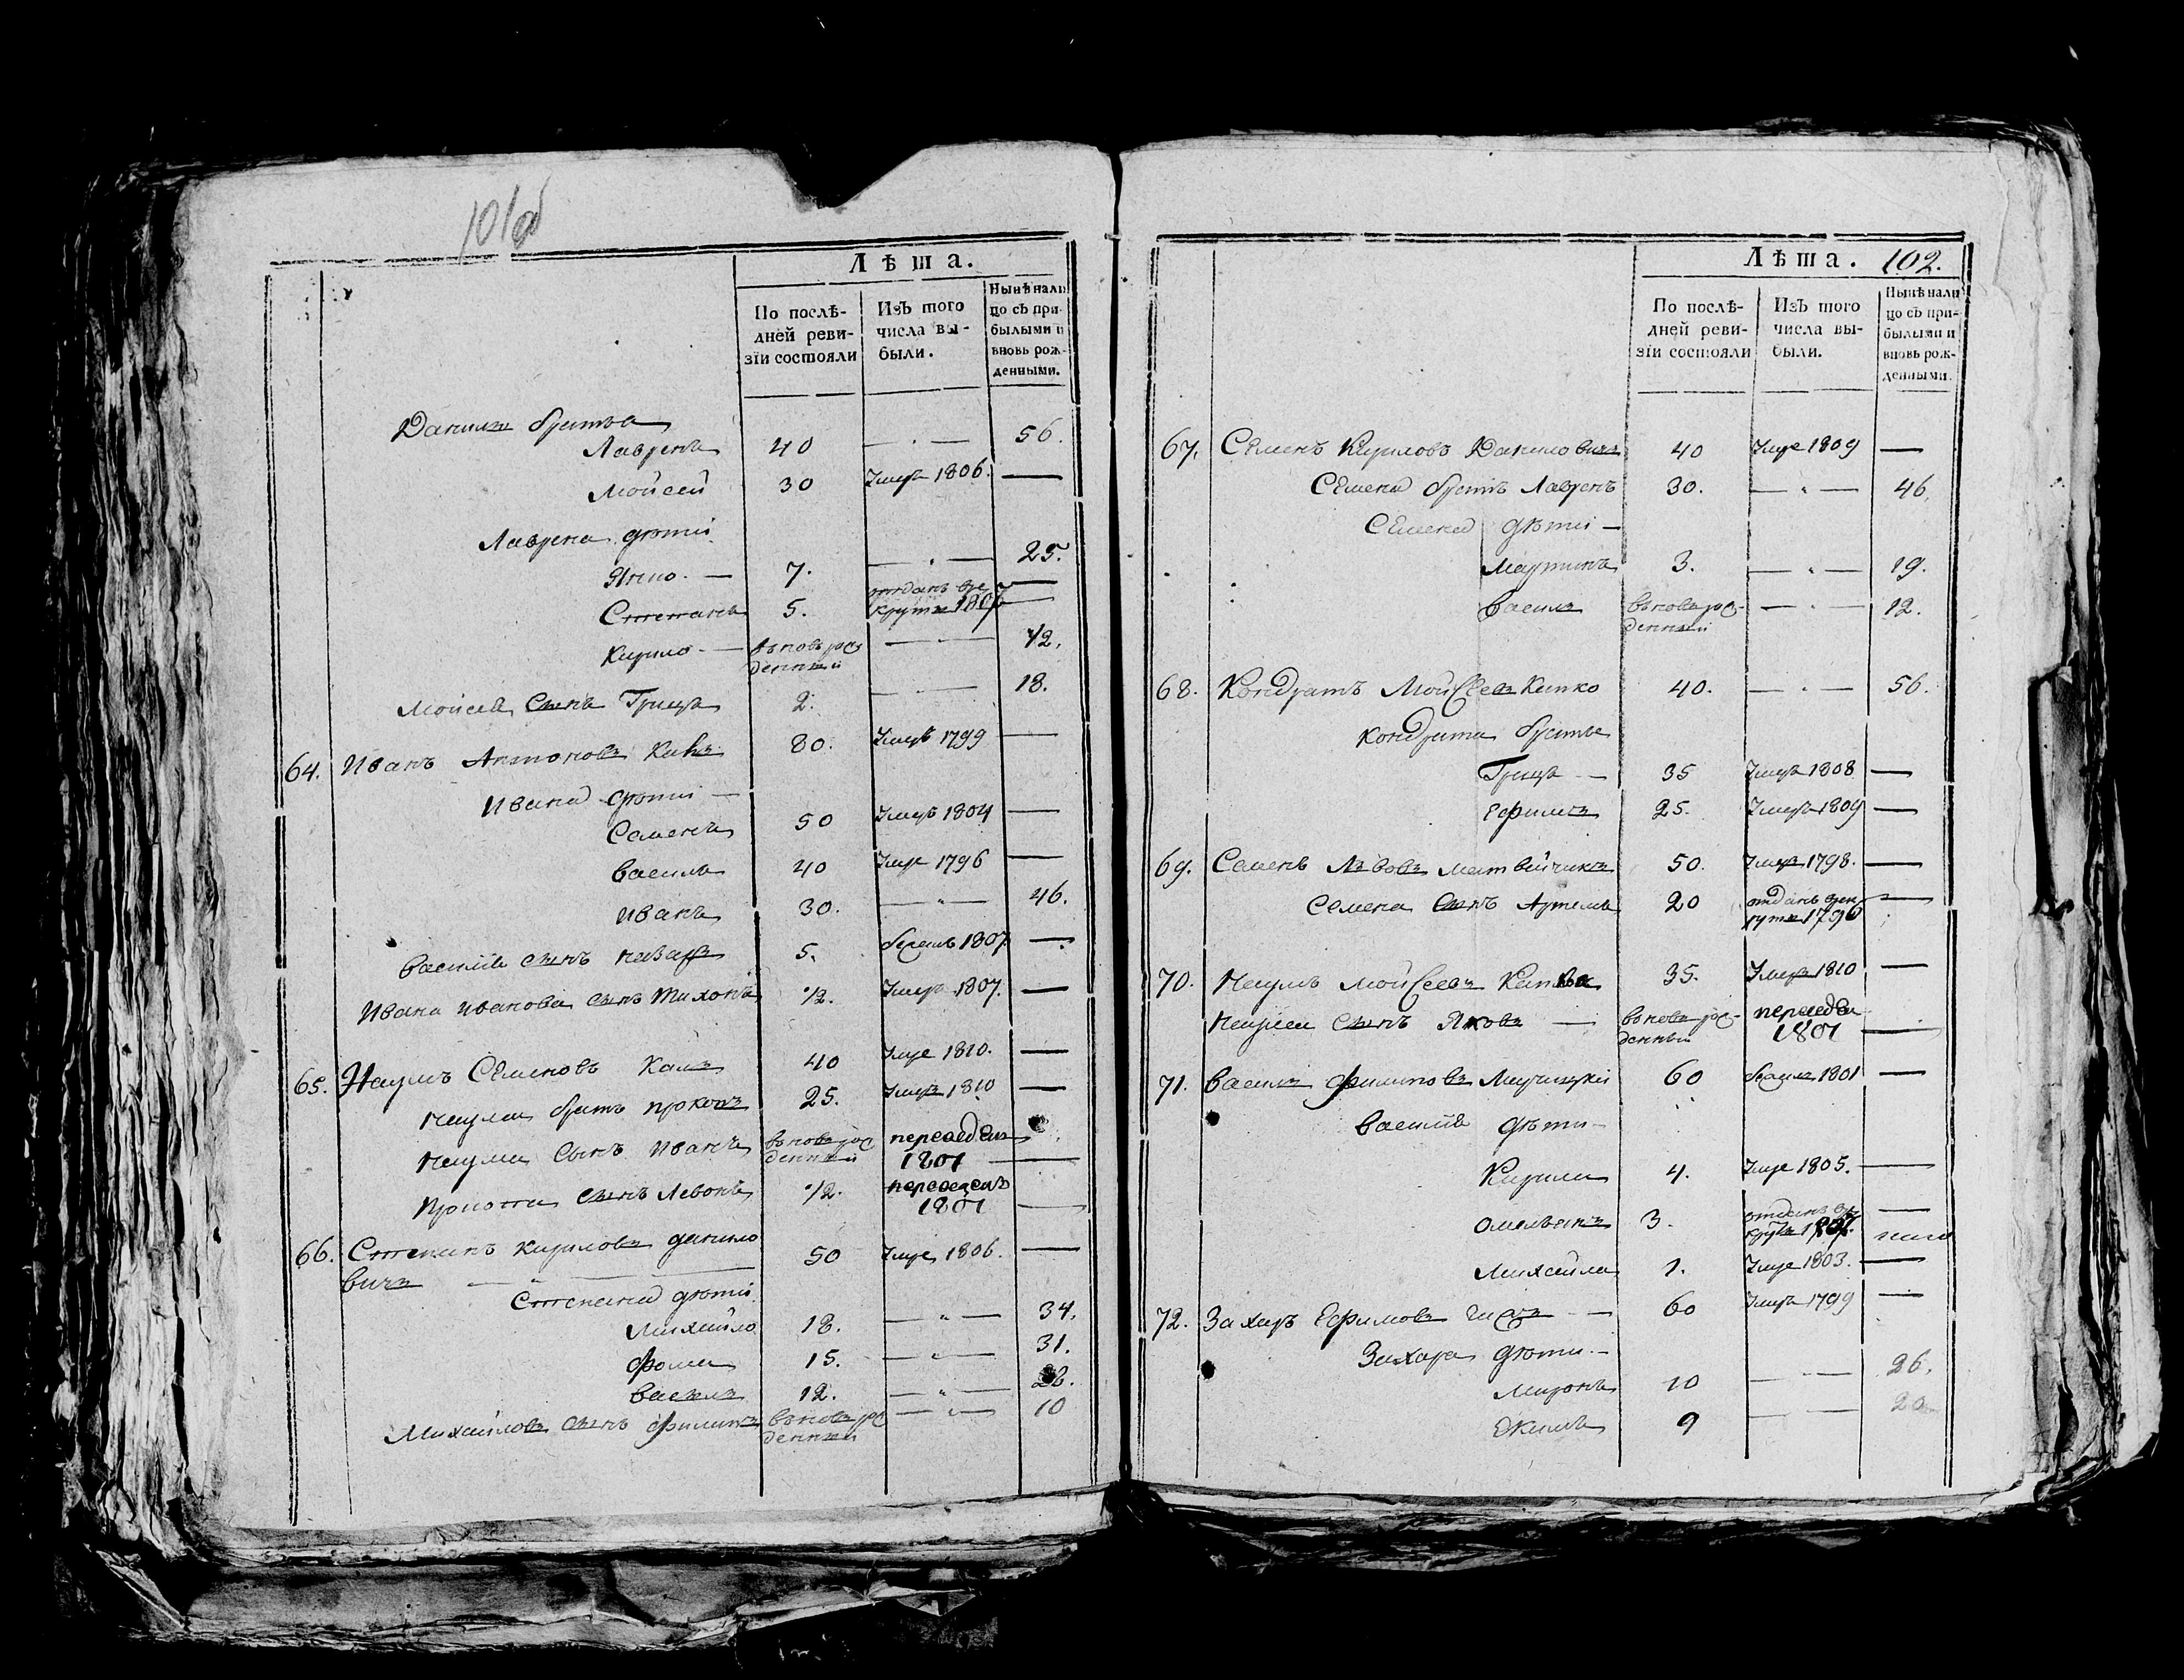 101об
Лѣта.
По послѣ-
дней реви-
зїи состояли
Изъ того
числа вы-
были.
Нынѣ нали
цо съ при-
былыми и
вновь рож-
денными.
Данилы братья
Лавренъ 40 — 56.
Мойсей 30 Умеръ 1806. —
Лаврена дѣти
Янко — 7. — 25.
Степанъ 5. отданъ въ ре
круты 1807 —
Кирило — вновь ро — 12.
жденный
Мойсея сынъ Грицъ 2. — 18.
64. Иванъ Антоновъ 80. Умеръ 1799 —
Ивана дѣти —
Семенъ 50 Умеръ 1804 —
Василь 40 Умре 1796 —
Иванъ 30. — 46.
Василія сынъ Назаръ 5. бѣжалъ 1807 —
Ивана Иванова сынъ Тихонъ 1/2. Умеръ 1807. —
65. Наумъ Семеновъ 40 Умре 1810. —
Наума братъ Прокопъ 25. Умеръ 1810 —
Наума сынъ Иванъ вновь рож переведенъ
денный 1801 —
сынъ Левонъ 1/2. переведенъ
1801 —
66. Степанъ Кириловъ Данило 50 Умре 1806. —
вичъ —
Степана дѣти
Михайло 18. — 34.
Фома 15. — 31.
Василь 12. —
Михайловъ сынъ Филипъ вновь ро — 10
жденный
Лѣта. 102.
По послѣ-
дней реви-
зїи состояли
Изъ того
числа вы-
были.
Нынѣ нали
цо съ при-
былыми и
вновь рож-
денными.
67. Семенъ Кириловъ Даниловичъ 40 Умре 1809 —
Семена братъ Лавренъ 30. — 46.
Семена дѣти —
Мартинъ 3. — 19.
Василь вновь ро- — 12.
жденный
68. Кондратъ Мойсеевъ 40. — 56.
Кондрата братья
Грицъ — 35 Умеръ 1808 —
Ефимъ 25. Умеръ 1809 —
69. Семенъ Матвейчикъ 50. Умеръ 1798. —
Семена сынъ Артемъ 20 отданъ в рек —
руты 1796
70. Наумъ Мойсеевъ 35. Умеръ 1810 —
Наума сынъ Яковъ — вновь ро- переведен
жденный 1801 —
71. Василь Филиповъ 60 бѣжалъ 1801 —
Василія дѣти —
Кирила 4. Умре 1805. —
Омельянъ 3. отданъ въ ре —
круты 1807.
Михайла 1. Умре 1803. —
72. Захаръ Ефимовъ — 60 Умеръ 1799 —
Захара дѣти. —
Миронъ 10 — 26.
Екимъ 9 —